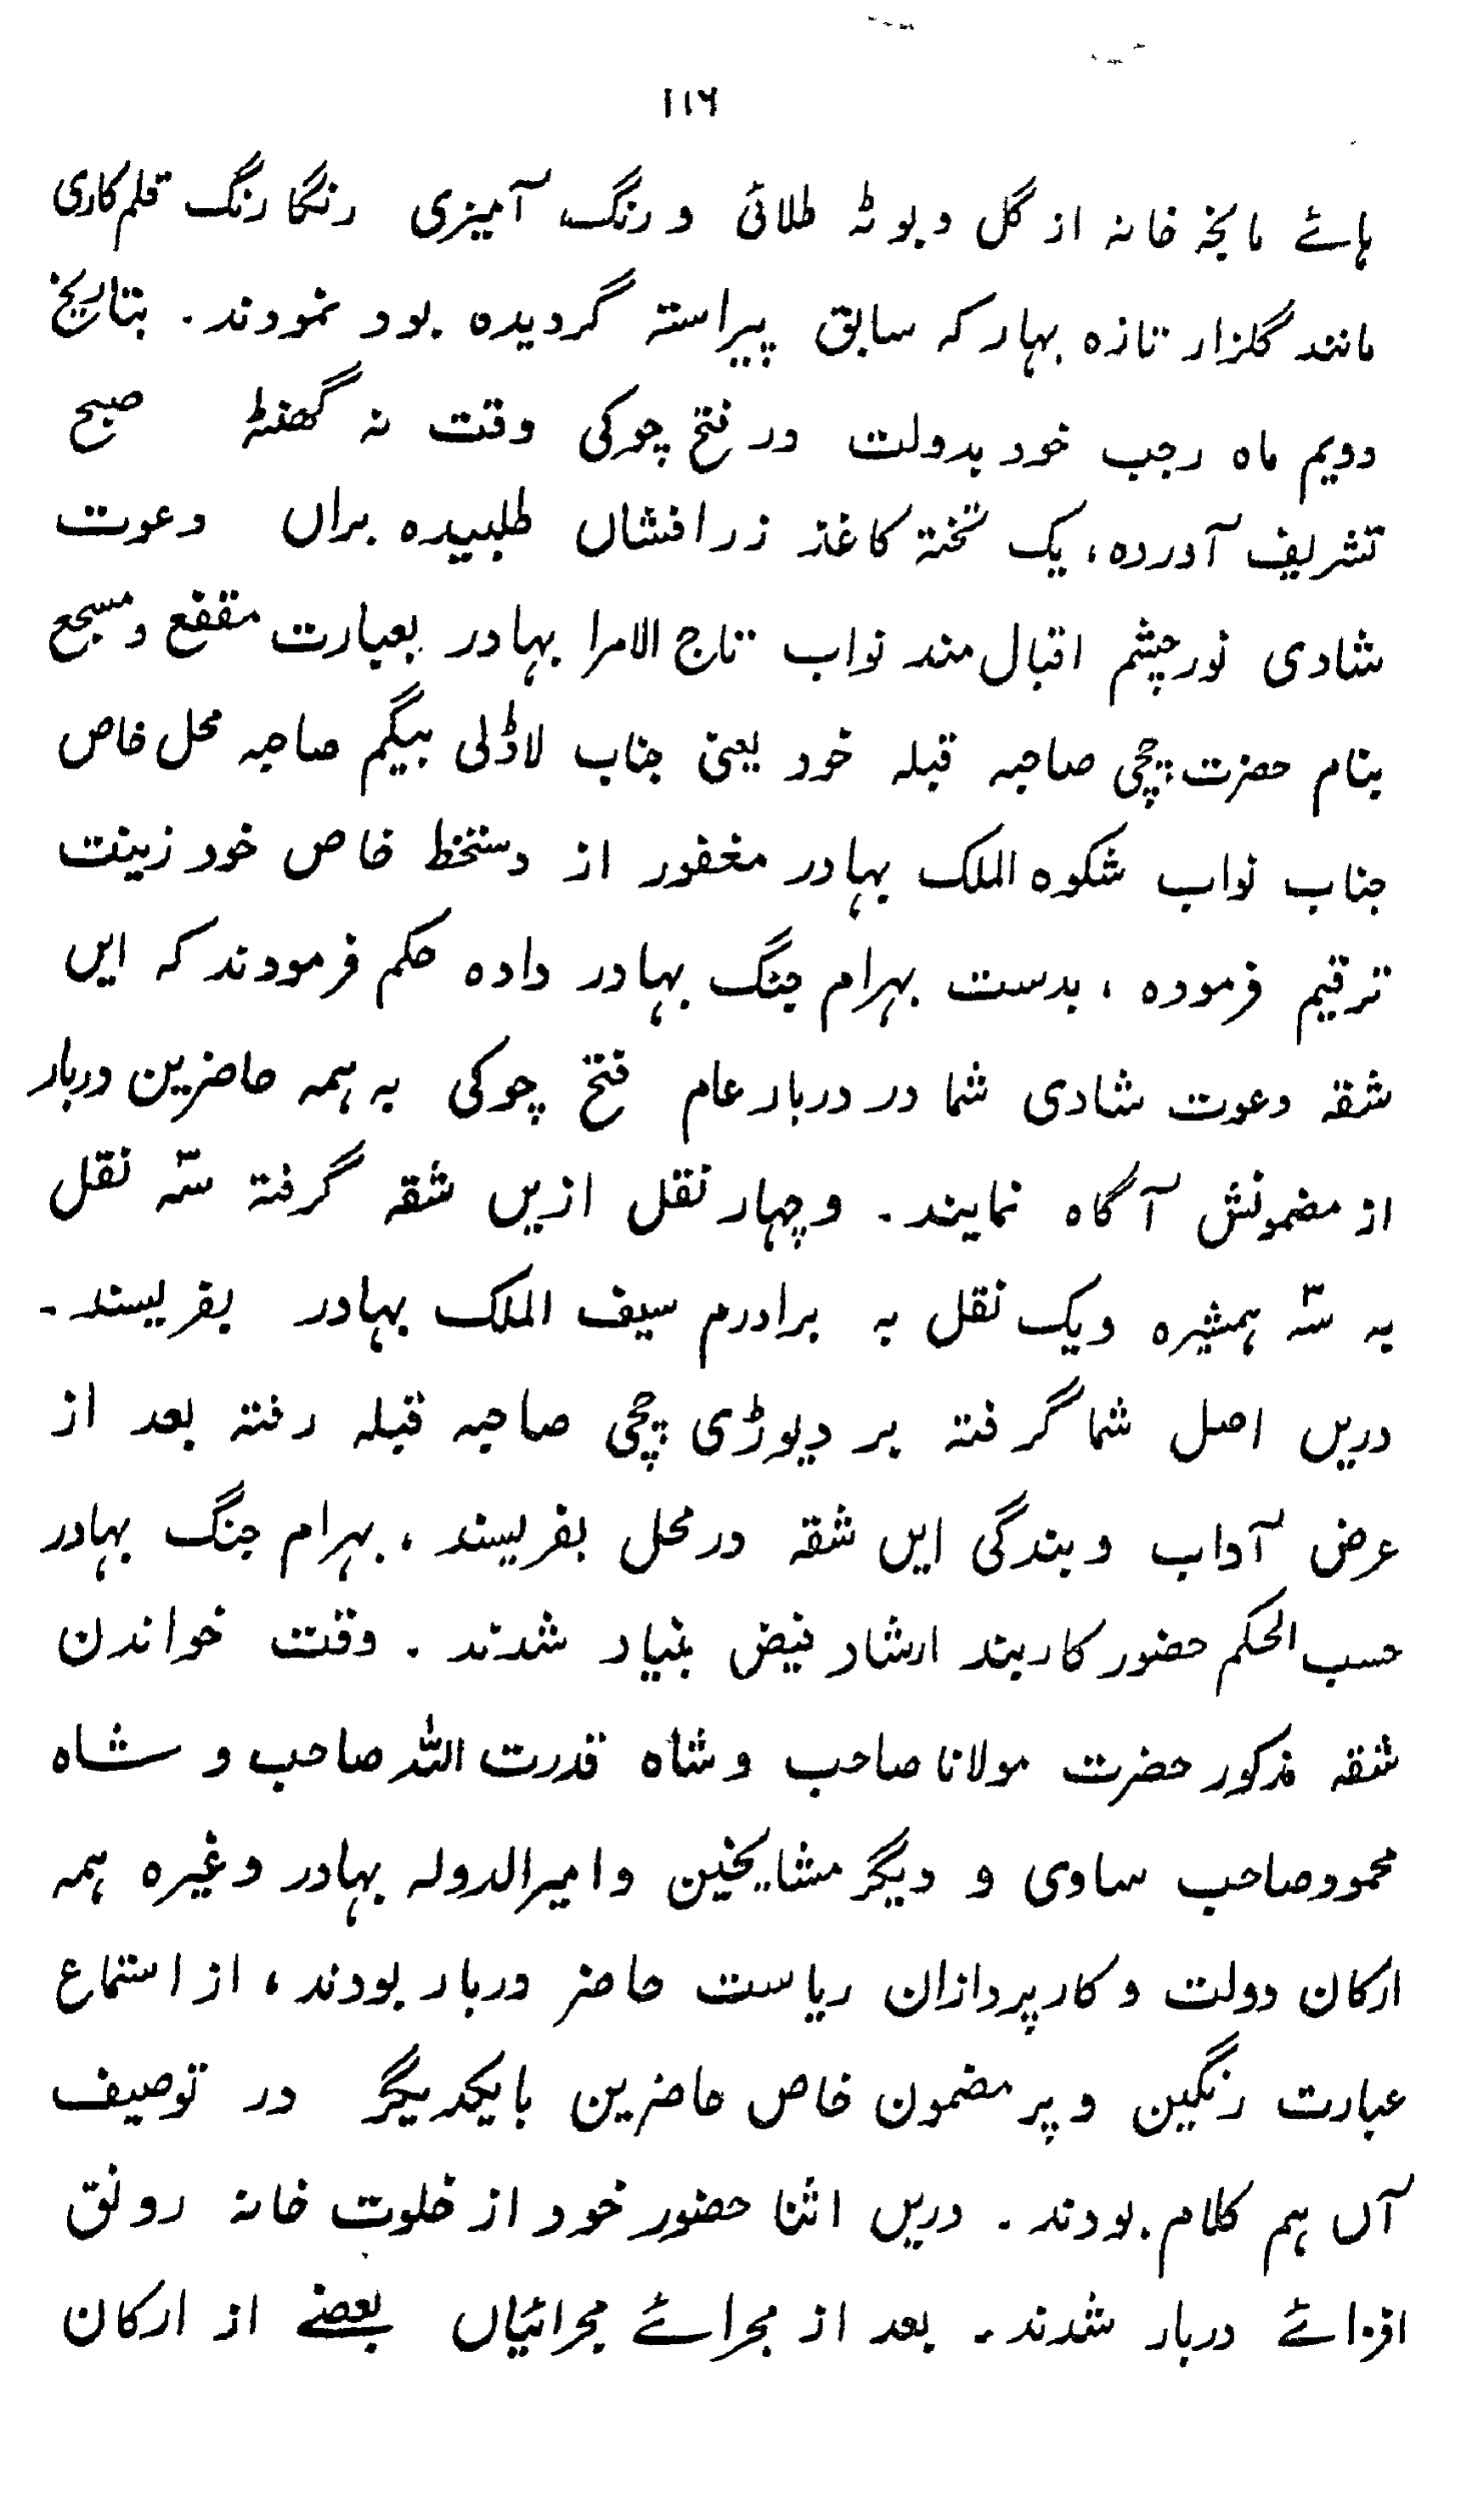 ۱۱۶
ہائے مابخہ خانہ از گل و بوٹہ طلائی و رنگ آمیزی رنگا رنگ قلم کاری
مانند گلزار تازہ بہار کہ سابق پیراستہ گردیدہ بود نمودند ۔ بتاریخ
دویم ماہ رجب خود بدولت در فتح چوکی وقت نہ گھنٹہ صبح
تشریف آوردہ ، یک تختہ کاغذ زر افشاں طلبیدہ براں دعوت
شادی نور چشم اقبال مند نواب تاج الامرا بہادر بعبارت مقفع و مسجع
بنام حضرت چچی صاحبہ قبلہ خود یعنی جناب لاڈلی بیگم صاحبہ محل خاص
جناب نواب شکوہ الملک بہادر مغفور از دستخط خاص خود زینت
ترقیم فرمودہ ، بدست بہرام جنگ بہادر دادہ حکم فرمودند کہ ایں
شقہ دعوت شادی شما در دربار عام فتح چوکی بہ ہمہ حاضرین دربار
از مضمونش آگاہ نمایند ۔ و چہار نقل ازیں شقہ گرفتہ سّہ نقل
بہ سّہ ہمشیرہ و یک نقل بہ برادرم سیف الملک بہادر بفریسند ۔
دریں اصل شما گرفتہ بر دیوڑی چچی صاحبہ قبلہ رفتہ بعد از
عرض آداب و بندگی ایں شقہ در محل بفریسند ، بہرام جنگ بہادر
حسب الحکم حضور کاربند ارشاد فیض بنیاد شدند ۔ وقت خواندن
شقہ مذکور حضرت مولانا صاحب و شاہ قدرت اللہ صاحب و شاہ
محمود صاحب ساوی و دیگر مشایخین و امیر الدولہ بہادر وغیرہ ہمہ
ارکان دولت و کارپردازان ریاست حاضر دربار بودند ، از استماع
عبارت رنگین و پر مضمون خاص حاضرین بایکدیگر در توصیف
آں ہم کلام بودند ۔ دریں اثنا حضور خود از خلوت خانہ رونق
افزائے دربار شدند ۔ بعد از مجرائے مجرائیاں بعضے از ارکان